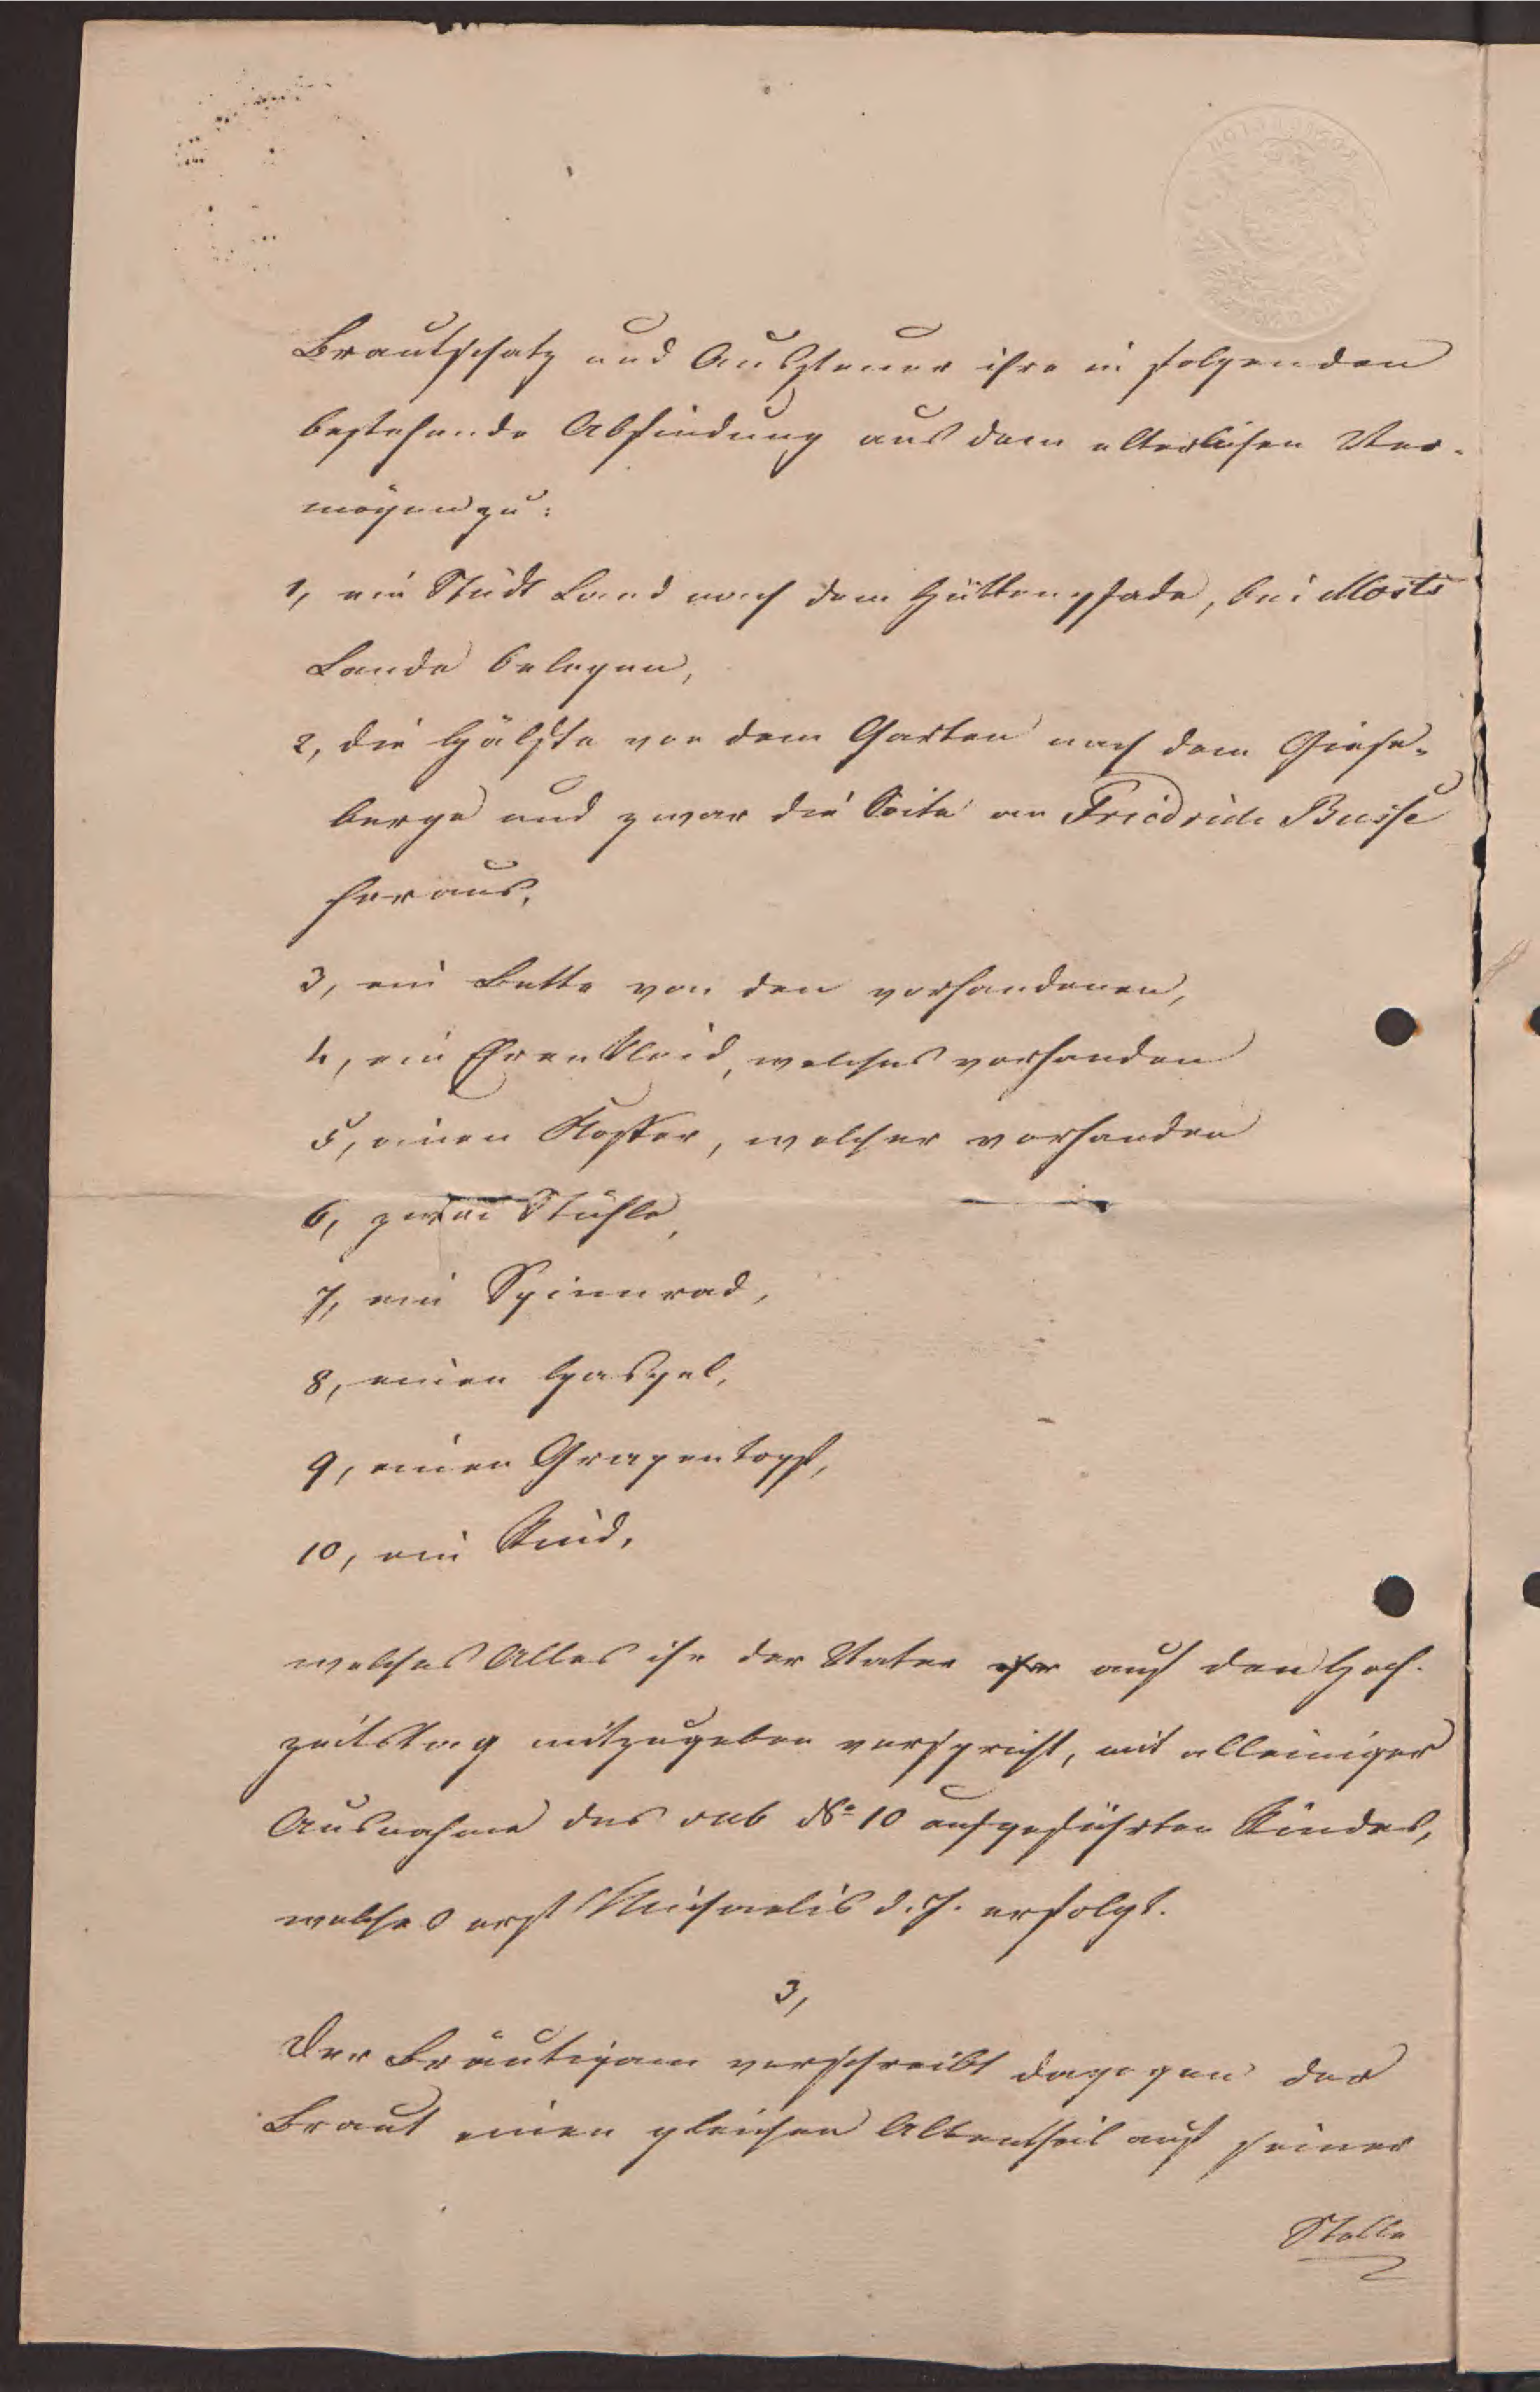 Brautschatz und Aussteuer ihre in folgenden
bestehende Abfindung aus dem elterlichen Ver-
mögen zu:
1, ein Stück Land nach dem Hüttenpfade, bei Mosts
Lande belegen,
2, die Hälfte von dem Garten nach dem Giese-
berge und zwar die Seite an Friedrich Busse
heraus,
3, ein Bette von den vorhandenen,
4, ein Ehrenkleid, welches vorhanden
5, einen Koffer, welcher vorhanden
6, zwei Stühle,
7, ein Spinnrad,
8, einen Haspel,
9, einen Grapentopf,
10, ein Rind,
welches Alles ihr der Vater auf den Hoch-
zeitstag mitzugeben verspricht, mit alleiniger
Ausnahme des sub No 10 aufgeführten Rindes,
welches erst Michaelis d. J. erfolgt.
3,
Der Bräutigam verschreibt dagegen der
Braut einen gleichen Altentheil auf seiner
Stelle